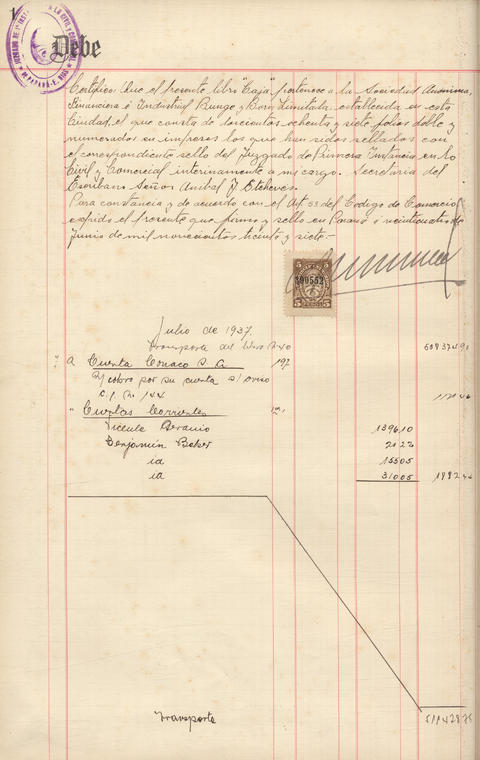 1
Debe
Certifico: Que el presente libro "Caja" pertenece a la Sociedad Anonima,
Financiera é Industrial Bunge y Born Limitada establecida en esta
Ciudad, el que consta de doscientos ochenta y siete folios doble y
numerados en impresos los que han sidos sellados con
el correspondiente sello del Juzgado de Primera Instancia en lo
Civil y Comercial interinamente a mi cargo. Secretaria del
Escribano Señor Anibal J. Etcheves.
Para constancia y de acuerdo con el Art 53 del Codigo de Comercio
expido el presente que firmo y sello en Paraná á veinticuatro de
Junio de mil novecientos treinta y siete.-
5 390552 5
Julio de 1937.
Transporte del libro
a Cuenta Conaco S. A. 197
cobro por su cuenta s/ aviso
144
" Cuentas Corrientes
1396.10
Benjamín Baker 21.23
id 155.05
id 310.05
Transporte